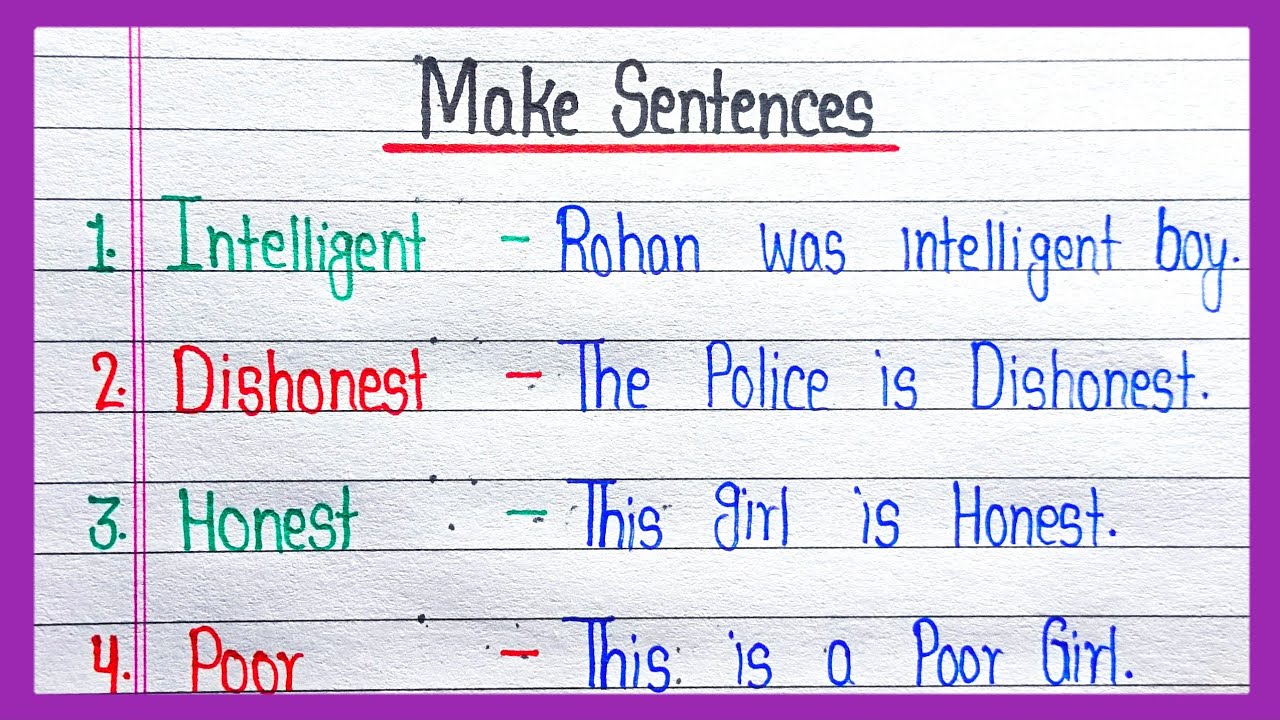 Make Sentences
1. Intelligent - Rohan was intelligent boy.
2. Dishonest - The Police is Dishonest.
3. Honest - This girl is Honest.
4. Poor - This is a Poor Girl.